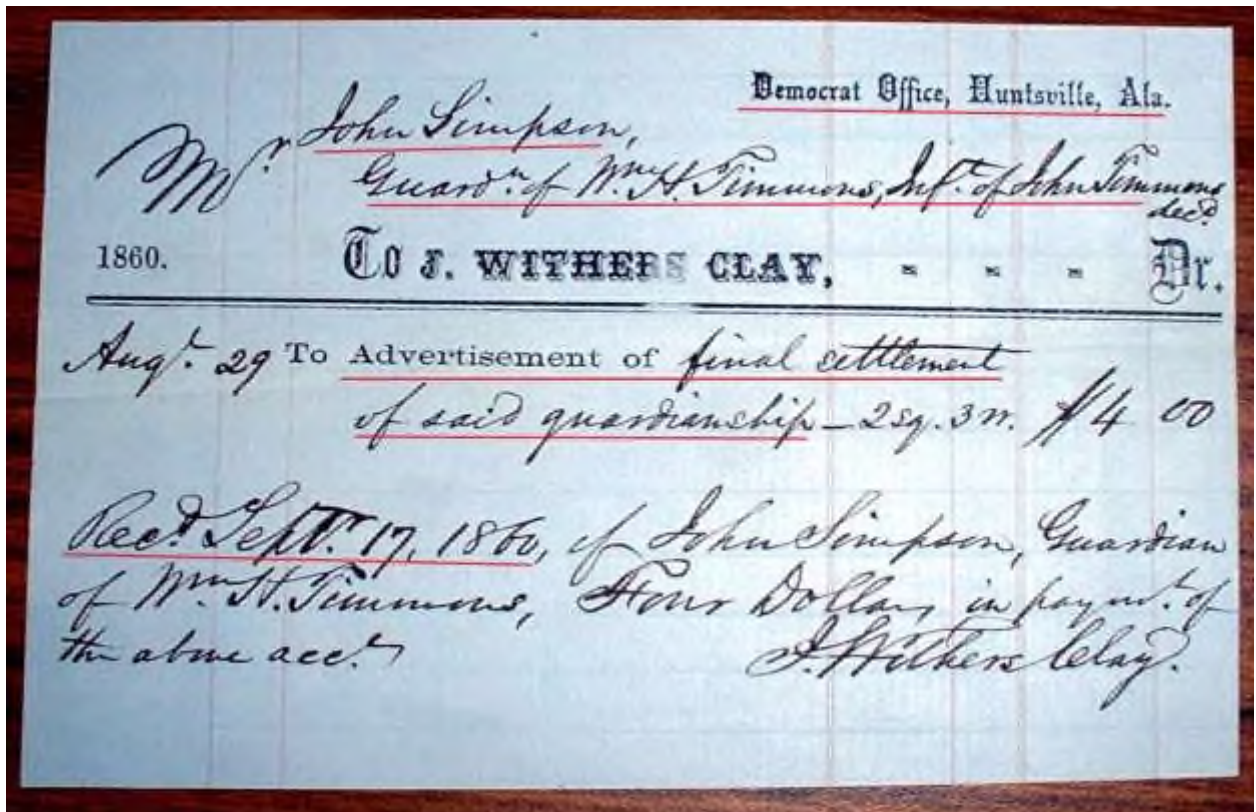 Democrat Office, Huntsville, Ala.
Mr John Simpson,
Guardn. of Wm. H. Timmons, Inft. of John Timmons
decd.
1860. To J. WITHERS CLAY, - - - Dr.
Augt. 29 To Advertisement of final settlement
of said guardianship – 2 sq. 3 w. $4 00
Recd. Septr. 17, 1860, of John Simpson, Guardian
of Wm H. Timmons, Four Dollars, in paymt. of
the above acct.
J. Withers Clay.